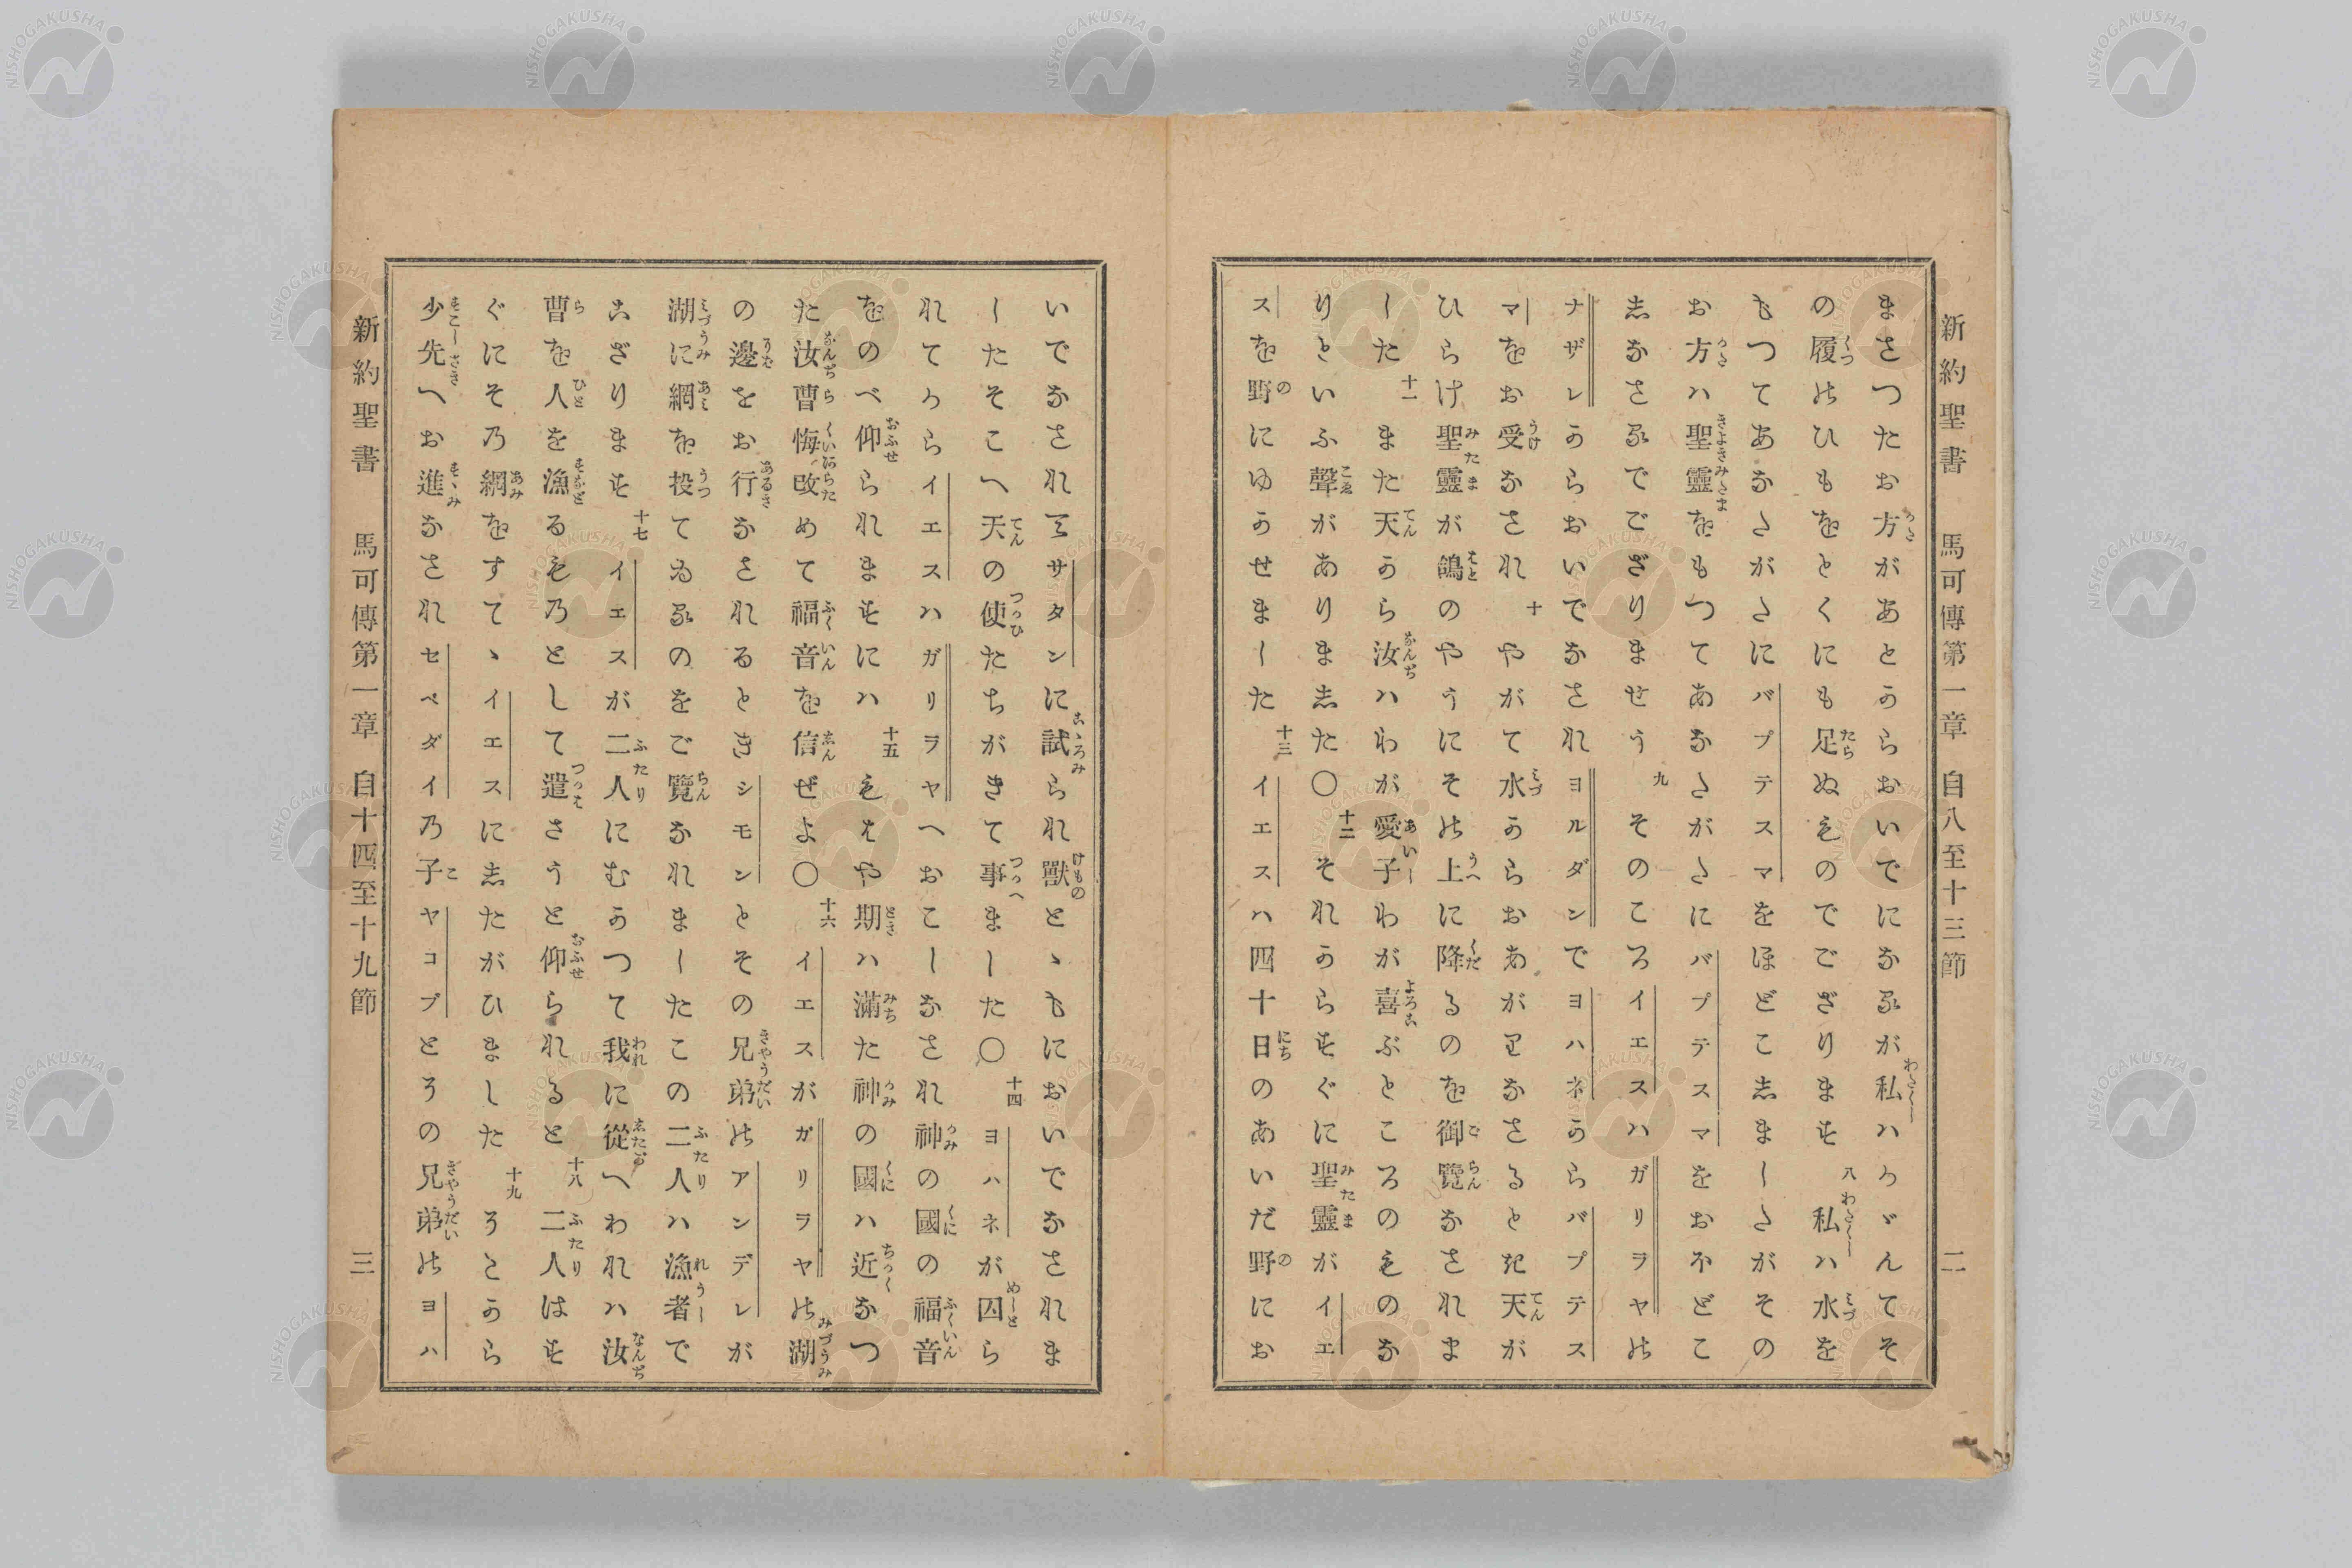 新約聖書 馬可傳第一章 自八至十三節 二
まさつたお方があとからおいでになるが私ハかゞんてそ
の履のひもをとくにも足ぬものでござります 八 私ハ水を
もつてあなたがたにバプテスマをほどこしましたがその
お方ハ聖靈をもつてあなたがたにバプテスマをおほどこ
しなさるでござりませう 九 そのころイエスハガリラヤの
ナザレからおいでなされヨルダンでヨハネからバプテス
マをお受なされ 十 やがて水からおあがりなさるとき天が
ひらけ聖靈が鴿のやうにその上に降るのを御覽なされま
した 十一 また天から汝ハわが愛子わが喜ぶところのものな
りといふ聲がありました〇 十二 それからすぐに聖靈がイエ
スを野にゆかせました 十三 イエスハ四十日のあいだ野にお
いでなされてサタンに試られ獸とゝもにおいでなされま
したそこへ天の使たちがきて事ました〇 十四 ヨハネが囚ら
れてからイエスハガリラヤへおこしなされ神の國の福音
をのべ仰られますにハ 十五 もはや期ハ滿た神の國ハ近なつ
た汝曹悔改めて福音を信ぜよ〇 十六 イエスがガリラヤの湖
の邊をお行なされるときシモンとその兄弟のアンデレが
湖に網を投てゐるのをご覽なされましたこの二人ハ漁者で
ござります 十七 イエスが二人にむかつて我に從へわれハ汝
曹を人を漁るものとして遣さうと仰られると 十八 二人はす
ぐにその網をすてゝイエスにしたがひました 十九 そこから
少先へお進なされセベダイの子ヤコブとその兄弟のヨハ
新約聖書 馬可傳第一章 自十四至十九節 三
NISHOGAKUSHA